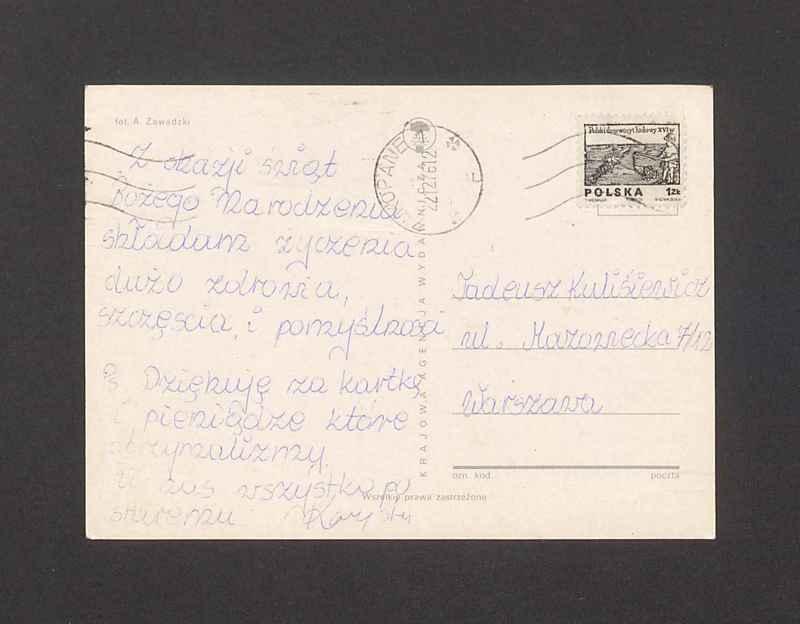 fot. A. Zawadzki
Z okazji świąt
Bożego Narodzenia
składam życzenia
dużo zdrowia,
szczęścia, i pomyślności
Ps. Dziękuję za kartkę
i pieniądze które
otrzymaliźmy
U nas wszystko po
staremu
KRAJOWA AGENCJA WYDAWNICZA
Wszelkie prawa zastrzeżone
ZAKOPANE
22.12.76.12
Polski drzeworyt ludowy XVI w
POLSKA 1ZŁ
Tadeusz Kulisiewicz
ul. Mazowiecka 7/12
Warszawa
nr kod. poczta